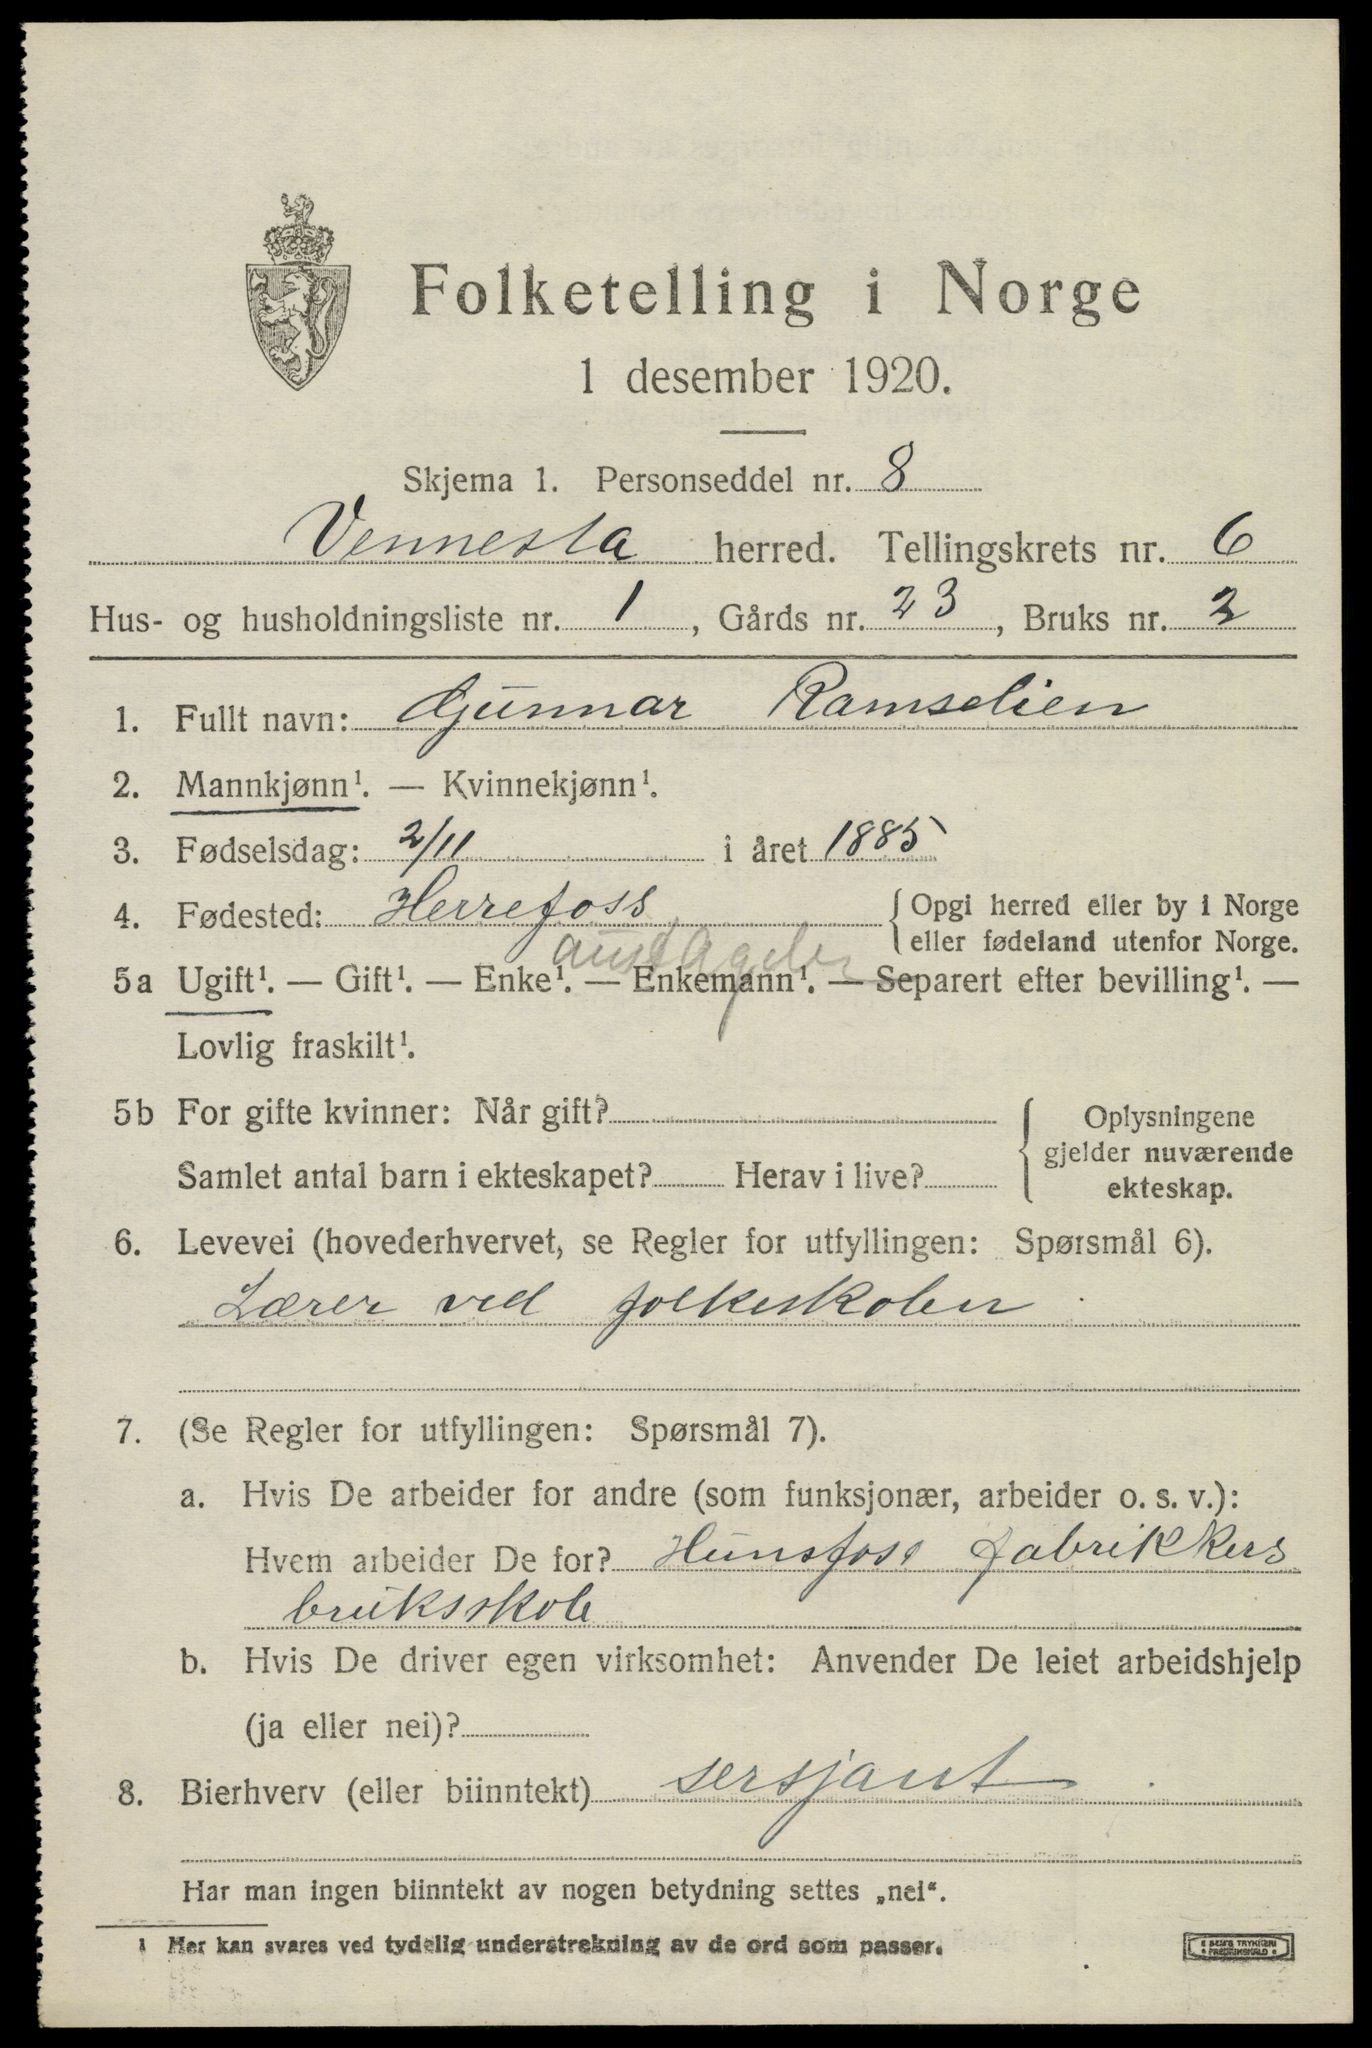 Folketelling i Norge
1 desember 1920.
Skjema 1. Personseddel nr. 8
Vennesla herred. Tellingskrets nr. 6
Hus- og husholdningsliste nr. 1, Gårds nr. 23, Bruks nr. 2
1. Fullt navn: Gunnar Ramselien
2. Mannkjønn¹. — Kvinnekjønn¹.
3. Fødselsdag: 2/11 i året 1885
4. Fødested: Herrefoss { Opgi herred eller by i Norge
eller fødeland utenfor Norge.
aust Agder
5a Ugift¹. — Gift¹. — Enke¹. — Enkemann¹. — Separert efter bevilling¹. —
Lovlig fraskilt¹.
5b For gifte kvinner: Når gift?
Samlet antal barn i ekteskapet? Herav i live?
{ Oplysningene
gjelder nuværende
ekteskap.
6. Levevei (hovederhvervet, se Regler for utfyllingen: Spørsmål 6).
Lærer ved folkeskolen
7. (Se Regler for utfyllingen: Spørsmål 7).
a. Hvis De arbeider for andre (som funksjonær, arbeider o. s. v.):
Hvem arbeider De for? Hunsfoss fabrikkers
bruksskole
b. Hvis De driver egen virksomhet: Anvender De leiet arbeidshjelp
(ja eller nei)?
8. Bierhverv (eller biinntekt) sersjant
Har man ingen biinntekt av nogen betydning settes „nei“.
1 Her kan svares ved tydelig understrekning av de ord som passer.